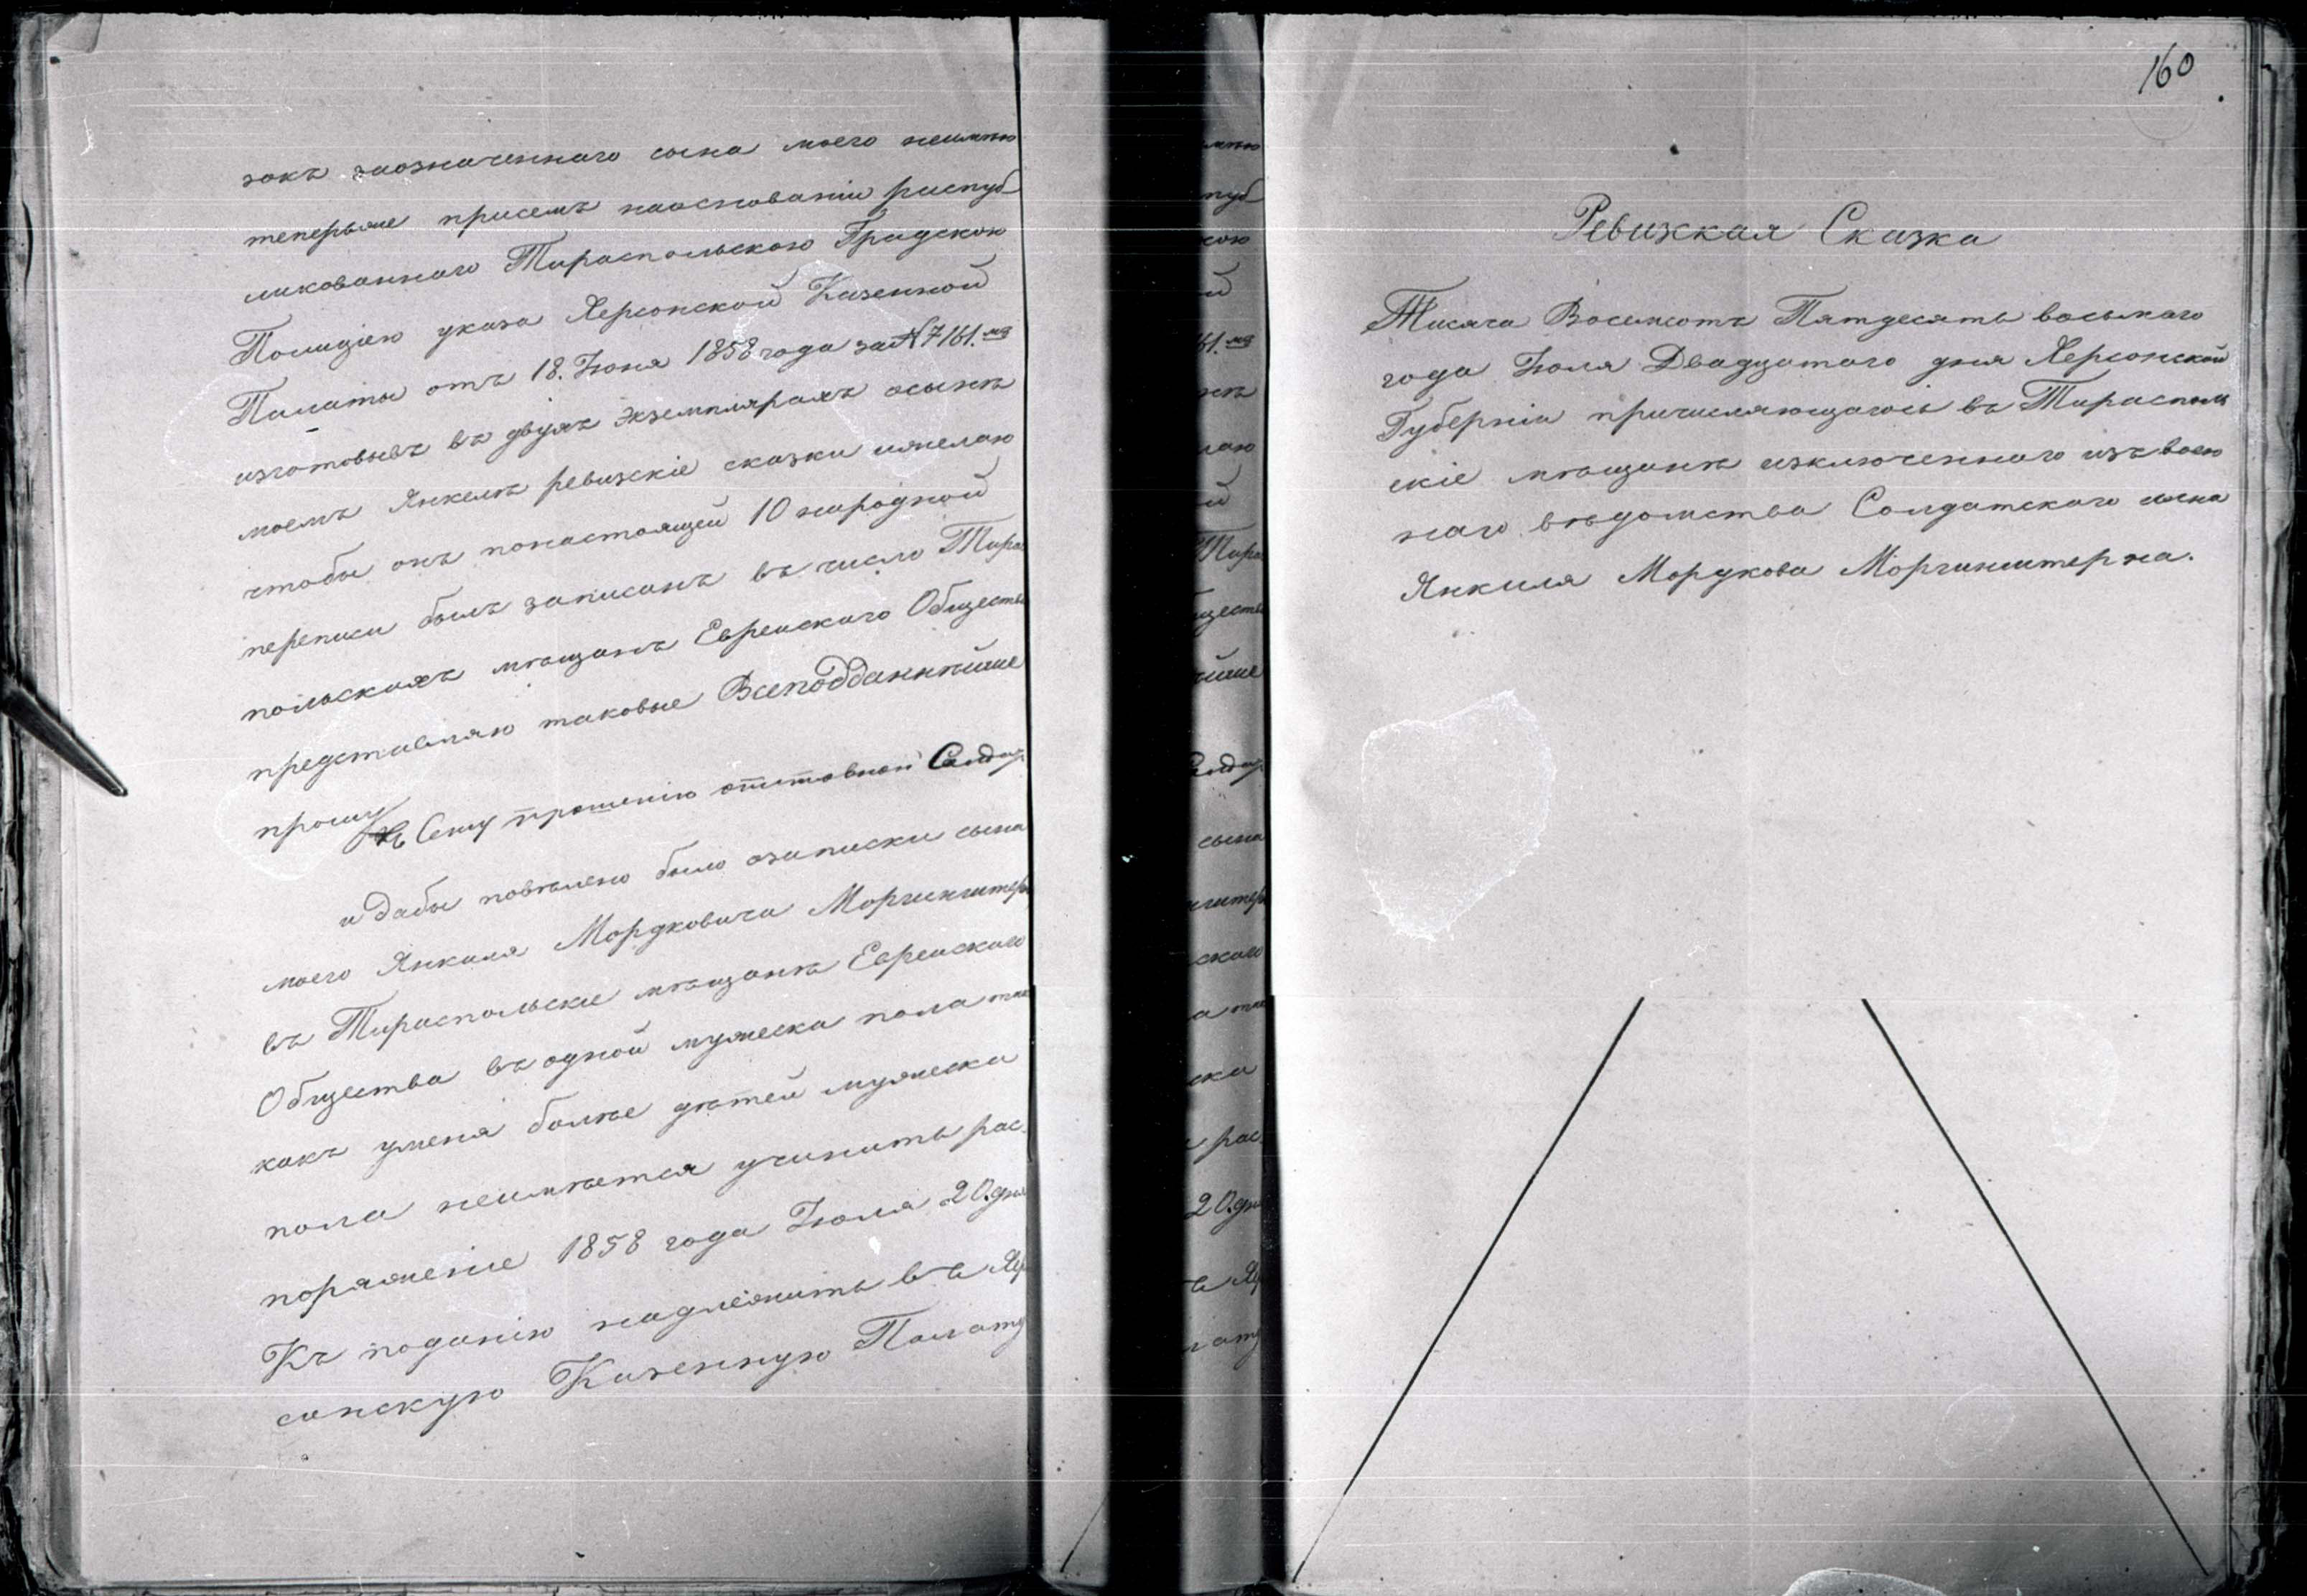 закъ заозначеннаго сына моего неимѣю
теперьже присемъ наоснованіи распуб
ликованнаго Тираспольскою Градскою
Полициею указа Херсонской Казенной
Палаты отъ 18. Іюня 1858 года за № 7161.мъ
изготовывъ въ двухъ экземплярахъ осынѣ
моемъ Янкелѣ ревизскіе сказки ижелаю
чтобы онъ понастоящей 10 народной
переписи былъ записанъ въ число Тирас
польскихъ мѣщанъ Евреискаго Общества
представляю таковые Всеподданнѣйше
прошу
Къ Сему прошенію отставной Солдат
и дабы повѣлено было озаписки сына
моего Янкиля Мордковича Моргинштерн
въ Тираспольские мѣщанѣ Евреискаго
Общества въ одной мужеска пола так
какъ уменя болѣе дѣтей мужеска
пола неимѣется учинить рас
поряжение 1858 года Іюля 20. дня
Къ поданію надлежитъ въ Хер
сонскую Казенную Палату
160
Ревизская Сказка
Тисяча Восемсотъ Пятдесятъ восьмаго
года Іюля Двадцатого дня Херсонской
Губерніи причисляющагось въ Тирасполь
скіе мѣщанѣ изключенного изъ воен
наго вѣдомства Солдатского сына
Янкиля Мордкова Моргинштерна.